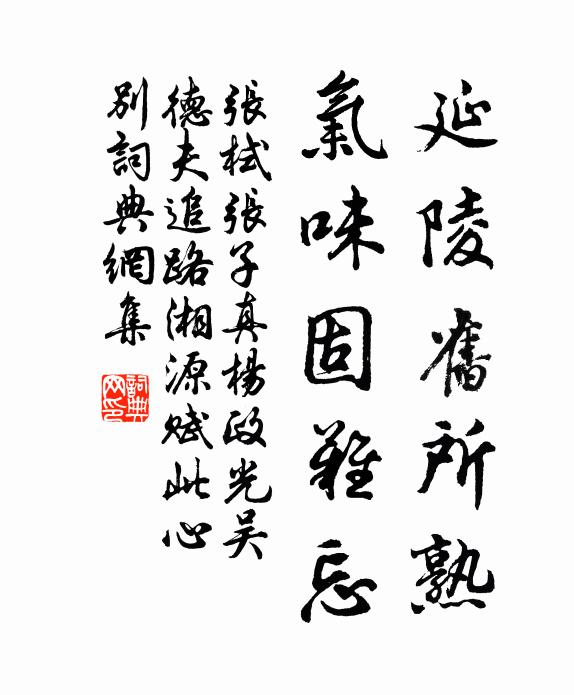 延陵舊所熟
氣味固難忘
張栻張子真楊政光吴
德夫追路湘源赋此心
别詞典網集
詞典网印